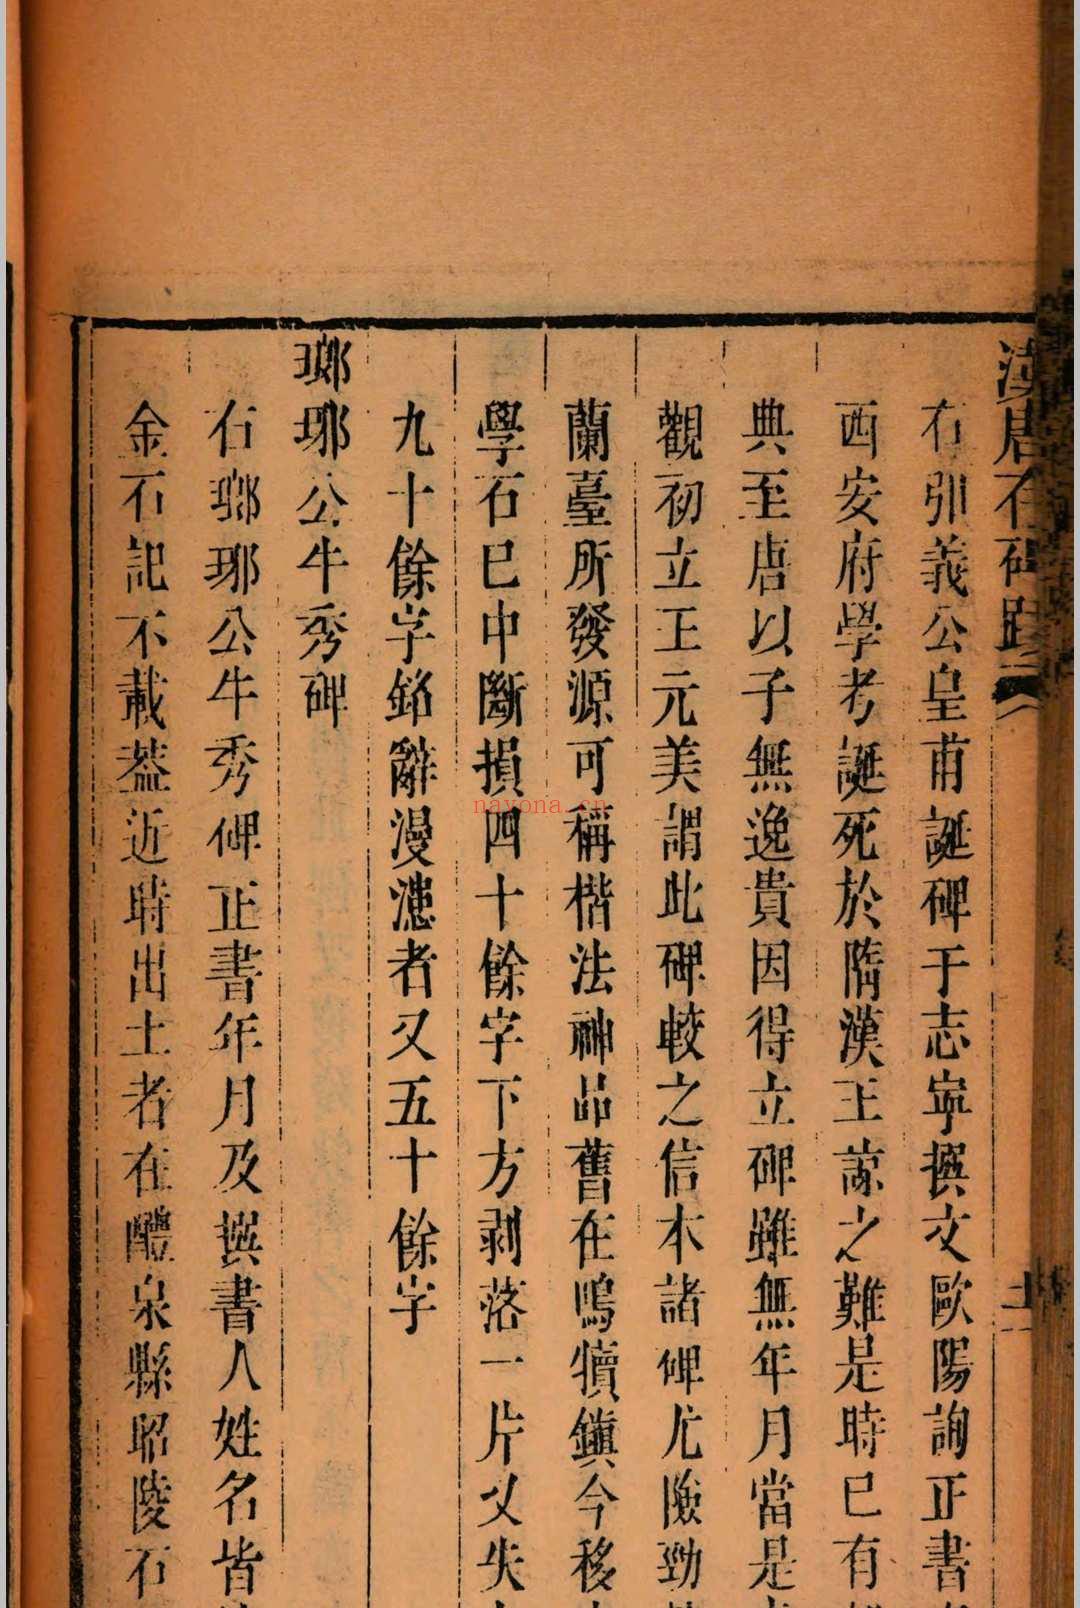 漢唐石碑跋
右引義公皇甫誕碑于志寧撰文歐陽詢正書
西安府學考誕死於隋漢王諒之難是時已有
典至唐以子無逸貴因得立碑雖無年月當是
觀初立王元美謂此碑較之信本諸碑尤險勁
蘭臺所發源可稱楷法神品舊在鳴犢鎮今移
學石已中斷損四十餘字下方剥落一片又失
九十餘字銘辭漫漶者又五十餘字
瑯琊公牛秀碑
右瑯琊公牛秀碑正書年月及撰書人姓名皆
金石記不載葢近時出土者在醴泉縣昭陵石
nayona.cn